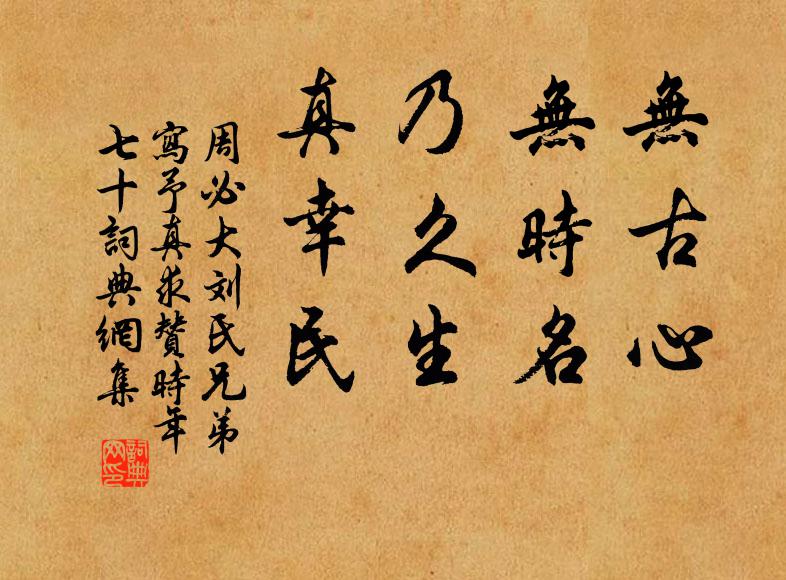 無古心
無時名
乃久生
真幸民
周必大刘氏兄弟
寫予真求贊時年
七十詞典網集
詞典
网印